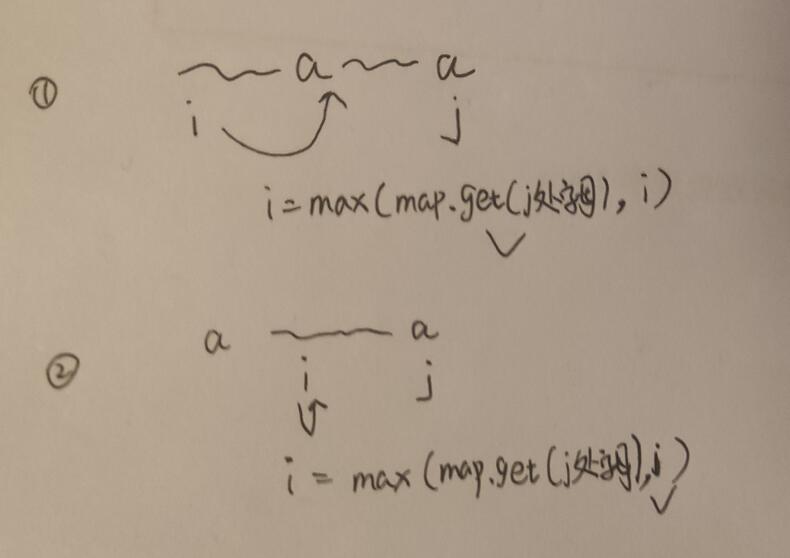 ① a a
i j
i = max(map.get(j处字母), i)
② a a
i j
i = max(map.get(j处字母), i)